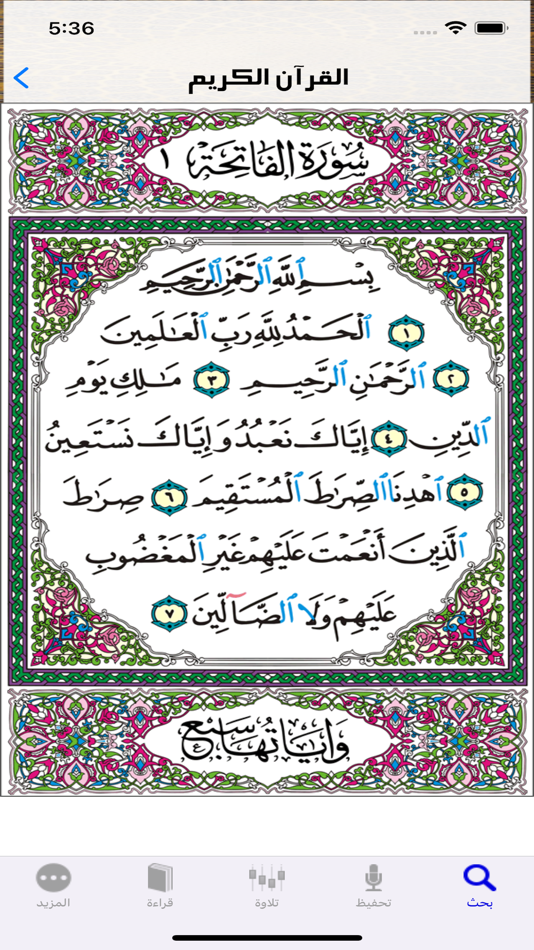 5:36
القرآن الكريم
سُورَةُ الفَاتِحَةِ ١
بِسْمِ ٱللَّهِ ٱلرَّحْمَٰنِ ٱلرَّحِيمِ
١ ٱلْحَمْدُ لِلَّهِ رَبِّ ٱلْعَٰلَمِينَ
٢ ٱلرَّحْمَٰنِ ٱلرَّحِيمِ ٣ مَٰلِكِ يَوْمِ
ٱلدِّينِ ٤ إِيَّاكَ نَعْبُدُ وَإِيَّاكَ نَسْتَعِينُ
٥ ٱهْدِنَا ٱلصِّرَٰطَ ٱلْمُسْتَقِيمَ ٦ صِرَٰطَ
ٱلَّذِينَ أَنْعَمْتَ عَلَيْهِمْ غَيْرِ ٱلْمَغْضُوبِ
عَلَيْهِمْ وَلَا ٱلضَّآلِّينَ ٧
وَآيَاتُهَا سَبْعٌ
بحث
تحفيظ
تلاوة
قراءة
المزيد